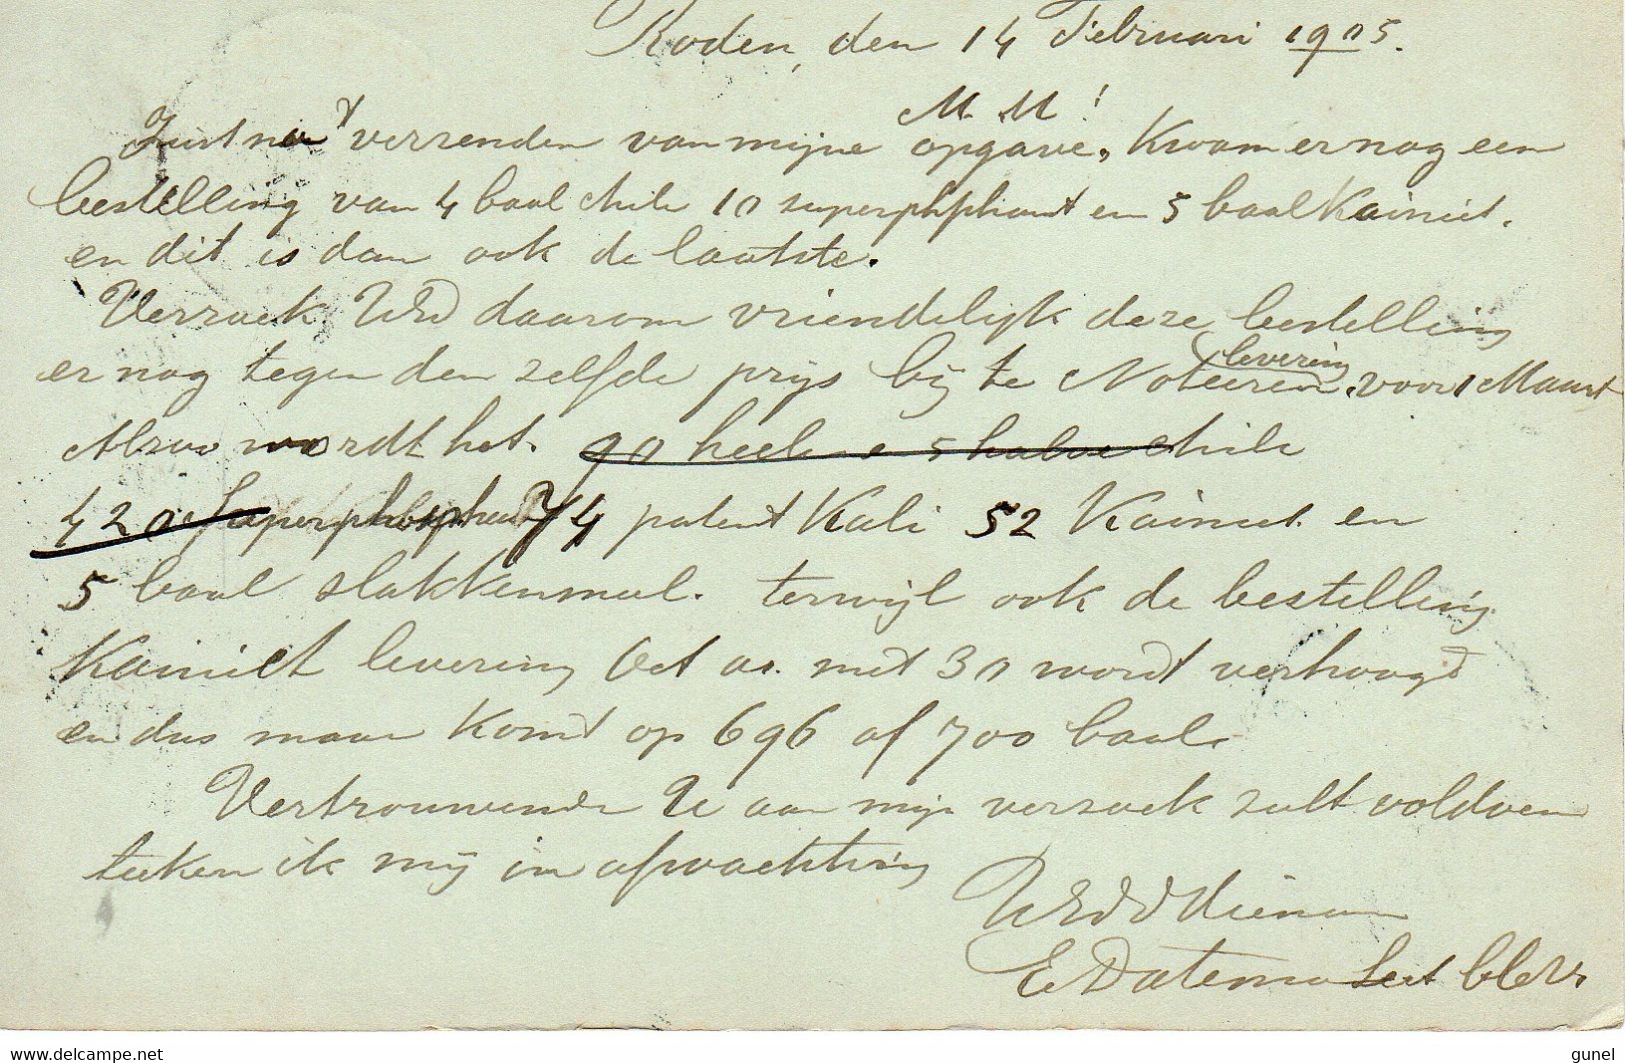 Roden, den 14 Februari 1905.
M. M!
Just na 't verzenden van mijne opgave, kwam er nog een
bestelling van 4 baal chili 10 superphphaat en 5 baal Kainiet.
en dit is dan ook de laatste.
Verzoek UEd daarom vriendelijk deze bestelling
levering
er nog tegen den zelfde prijs bij te Noteeren. voor 1 Maart
Alzoo wordt het. 90 heele en 5 halve chili
420 Superphosphaat 74 patent Kali 52 Kainiet en
5 baal slakkenmeel. terwijl ook de bestelling
Kainiet levering Oct as. met 30 wordt verhoogd
en dus maar komt op 696 of 700 baal.
Vertrouwende U aan mijn verzoek zult voldoen
teeken ik mij in afwachting
UEd d Dienaar
E Datema
www.delcampe.net
gunel